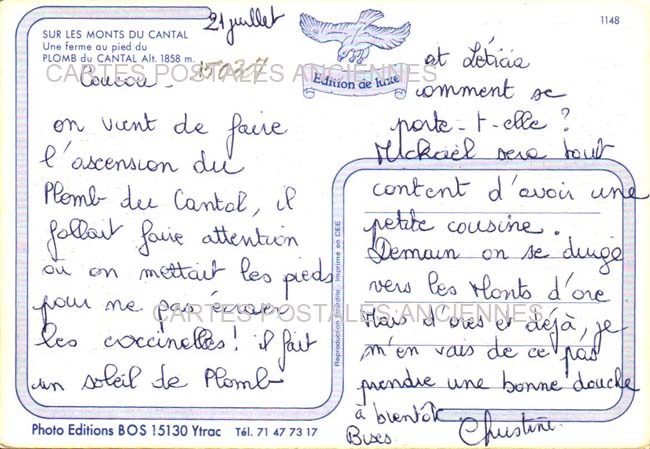 SUR LES MONTS DU CANTAL
Une ferme au pied du
PLOMB du CANTAL Alt. 1858 m.
21 juillet
15037
Edition de luxe
1148
CARTES POSTALES ANCIENNES
Coucou -
on vient de faire
l'ascension du
Plomb du Cantal, il
fallait faire attention
où on mettait les pieds
pour ne pas écraser
les coccinelles ! il fait
un soleil de Plomb
et Léticia
comment se
porte-t-elle ?
Mickaël sera tout
content d'avoir une
petite cousine.
Demain on se dirige
vers les Monts d'ore
Mais d'ores et déjà, je
m'en vais de ce pas
prendre une bonne douche
à bientôt
Bises
Christine
CARTES POSTALES ANCIENNES
Imprimé en CEE
Photo Editions BOS 15130 Ytrac Tél. 71 47 73 17